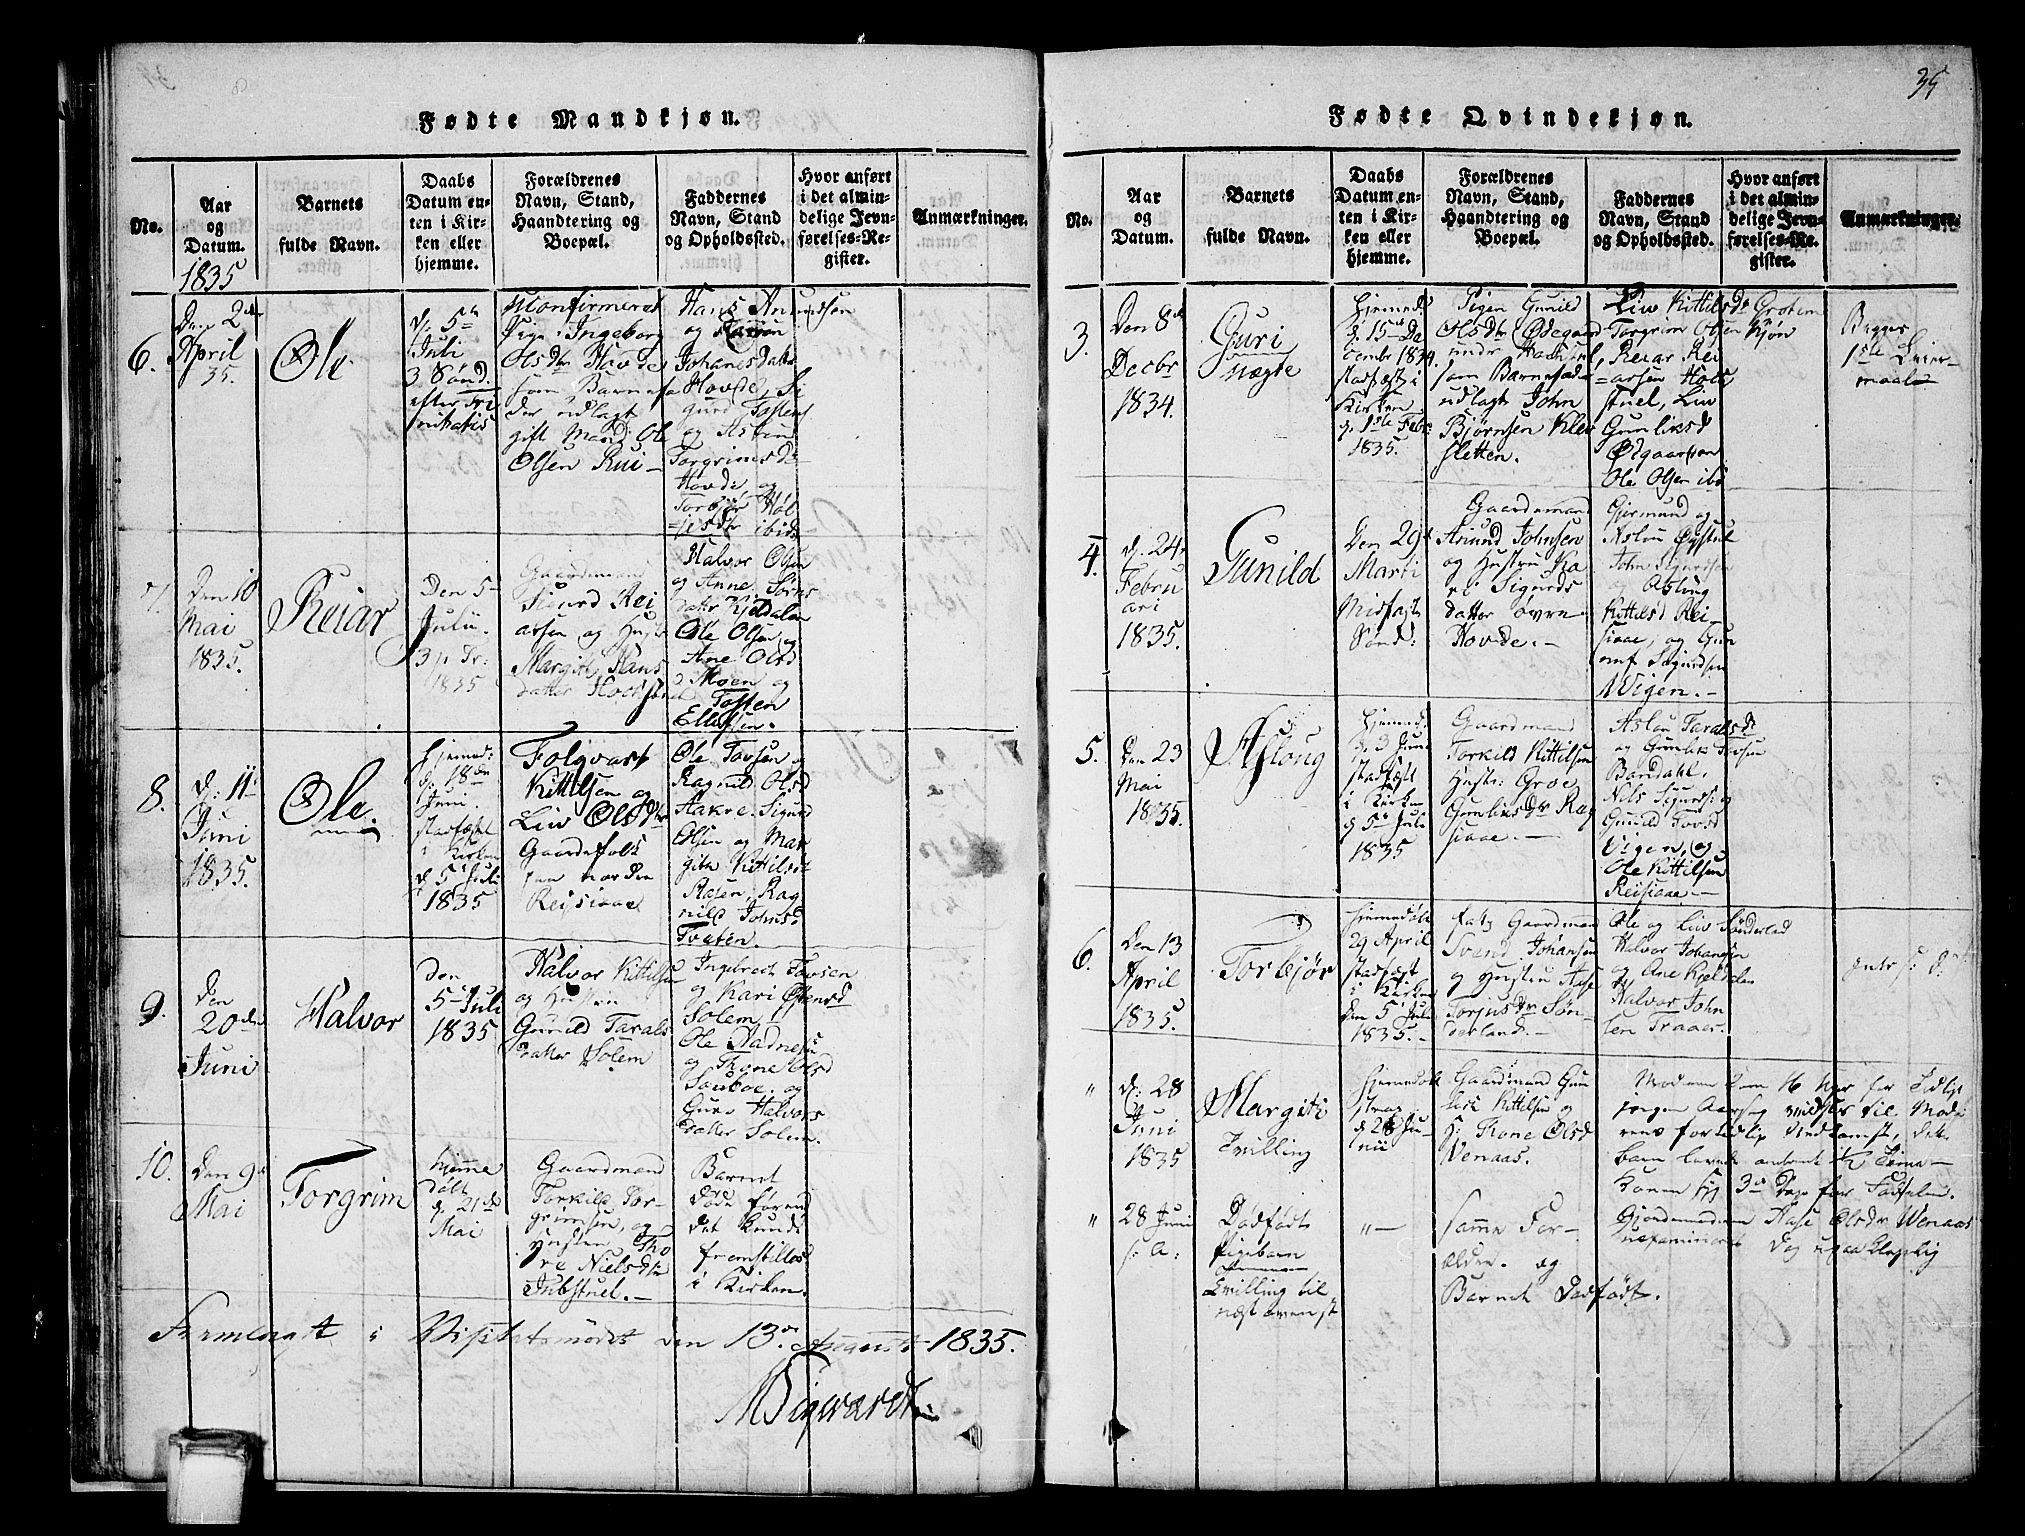 Fødte Mandkjøn.
No.
Aar
og
Datum.
1835
Barnets
fulde Navn.
Daabs
Datum en-
ten i Kir-
ken eller
hjemme.
Forældrenes
Navn, Stand,
Haandtering og
Boepæl.
Faddernes
Navn, Stand
og Opholdssted.
Hvor anført
i det almin-
delige Jevn-
førelses-Re-
gister.
Anmærkninger.
6.
Den 2den
April
35.
Ole
d: 5te
Juli
3 Sønd.
efter Tri
nitatis
Uconfirmeret
Pige Ingeborg
Olsdtr Hovde
som Barnefa
der udlagt
gift Mand Ole
Olsen Rui-
Hans Amundsen
og Karen
Johanesdatter
Hovde, Si
gurd Tostens
og Aslau
Torgrimsd
Hovde og
Torbjør Hol
jesdtr ibid
7.
Den 10
Mai
1835.
Reiar
Den 5
Juli.
3 p Tr:
1835
Gaardmand
Sigurd Rei
arsen og Hustr
Margit Hans
datter
Halvor Olsen
og Anne Sørns
datr Kjeldalen
Ole Olsen og
Ane Olsd
Moen og
Tosten
Ellefsen.
8.
d: 11te
Juni
1835.
Ole.
Hjemmed:
d: 18de
Juni.
stadfæstet
i Kirken
d 5te Juli
1835
Folqvart
Kittilsen og
Liv Olsdtr
Gaardefolk
paa nordre
Reisiaae
Ole Tovsen
Ragnild Olsd
Aakre. Sigurd
Olsen og Mar
git Kittilsd
Rasen, Rag
nild Johnsd
Tveten.
9.
Den
20de
Juni
Halvor
Den
5te Juli
1835
Halvor Kittilsen
og Hustru
Gunild Taralds
datter Solem
Ingebret Tovsen
og Kari Østensd
Solem.
Ole Hadnesen
og Thone Olsd
Sauboe. og
Guro Halvors
datter Solem.
10.
Den 9de
Mai
Torgrim
hjemme
døbt
d. 21de
Mai
Gaardmand
Torkild Tor
grimsen, og
Hustru Tho
re Nielsdtr
Jubstuel.-
Barnet
døde førend
det kunde
fremstilles
i Kirken.
Fremlagt i Visitatsmødet den 13de August 1835.
Fødte Qvindekjøn.
35
No.
Aar
og
Datum.
Barnets
fulde Navn.
Daabs
Datum en-
ten i Kir-
ken eller
hjemme.
Forældrenes
Navn, Stand,
Haandtering og
Boepæl.
Faddernes
Navn, Stand
og Opholdssted.
Hvor anført
i det almin-
delige Jevn-
førelses-Re-
gister.
Anmærkninger.
3.
Den 8de
Decbr
1834.
Guri
uægte
Hjemmed:
d. 15de De
cembr 1834.
stadfæst i
Kirken
d. 1ste Febr:
1835.
Pigen Gunild
Olsdtr Ødegaard
som Barnefader
udlagt John
Bjørnsen Klev
sletten.
Liv Kittilsdr Grotem
Torgrim Olsen Mjøn
Reiar Rei
=arsen Hov
stuel, Liv
Gunliksd
Ødegaarden
Ole Olsen ibd
Begges
1ste Leier-
maal
4.
d. 24de
Febru
ari
1835.
Gunild
Den 29de
Marti
Midfaste
Sønd:
Gaardemand
Amund Johnsen
og Hustru Ka
ri Sigurds
datter øvre
Hovde.-
Gjermund og
Aslau
John Sigurdsen
og Aslaug
Kittilsd Rei
siaae, og Gun
Sigurdsen
Vigen.-
5.
Den 23
Mai
1835.
Aslaug
Hjemmed:
d. 3 Juni
stadfæst
i Kirken
d. 5te Juli
1835
Gaardmand
Torkild Kittilsen
Hustr: Groe
Gunliksdr Rei
siaae.-
Aslau Taraldsdr
og Gunlek Tovsen
Bandahl.
Nils Sigurds: og
Gunild Tovsd
Vigen, og
Ole Kittilsen
Reisiaae.-
6.
Den 13
April
1835.
Torbjør
Hjemedøbt
29 April
stadfæst
i Kirken
Den 5te Juli
1835.-
Gaardman
Svend Johansen
og Hustru Aase
Torjusdr Søn-
derland.-
Ole og Liv Sønderlad
Halvor Johansen
og Ane Kieldalen
Halvor John
sen Traaer.
"
d: 28
Juni
1835
Margith
Tvilling
Hjemedøbt
strax
d 28 Ju-
nii
Gaardmand Gun
lek Kittilsen og
H: Tone Olsd
Wenaas.
"
28 Juni
s: A:
Dødfødt
Pigebarn
Tvilling til
næst ovenst
"-
samme For-
ældre. og
Barnet Dødfødt.
Moderen kom 16 Uger for Tidlig
Barn levede omtrent 1/2 Time-
Konen syg 3de Dage før Fødselen.
Gjordemoderen Aase Olsdr Wenaas